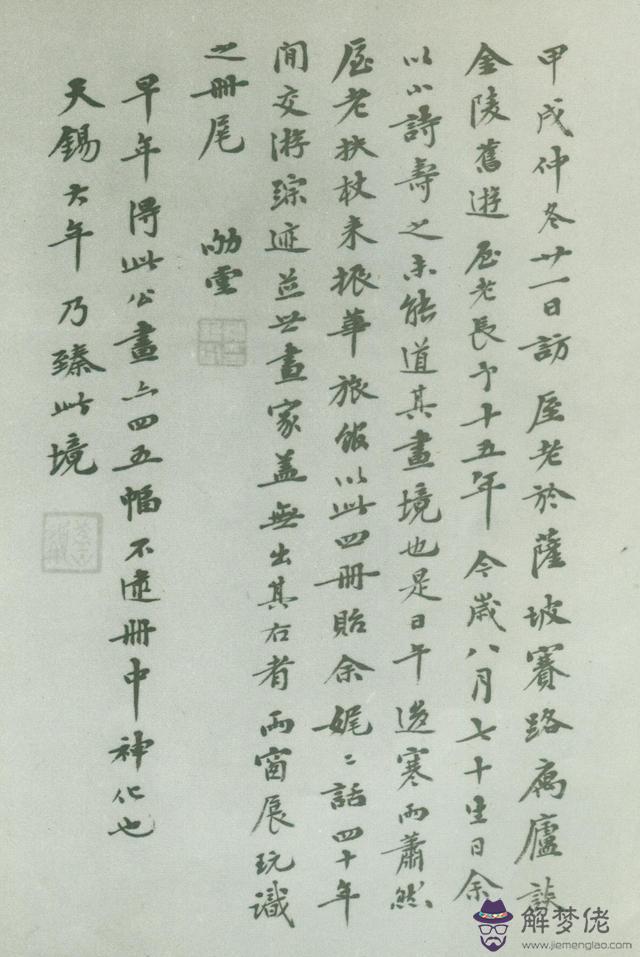 甲戌仲冬廿一日訪 厔老於薩坡賽路寓廬談
金陵舊遊 厔老長予十五年 今歲八月七十生日余
以小詩壽之未能道其畫境也是日午後寒雨蕭然
厔老扶杖來振華旅館以此四冊貽余娓〻話四十年
間交游踪迹並世畫家蓋無出其右者 雨窗展玩識
之冊尾
早年得此公畫亦四五幅不逮冊中神化也
天錫六年乃臻此境
解梦佬
www.jiemenglao.com